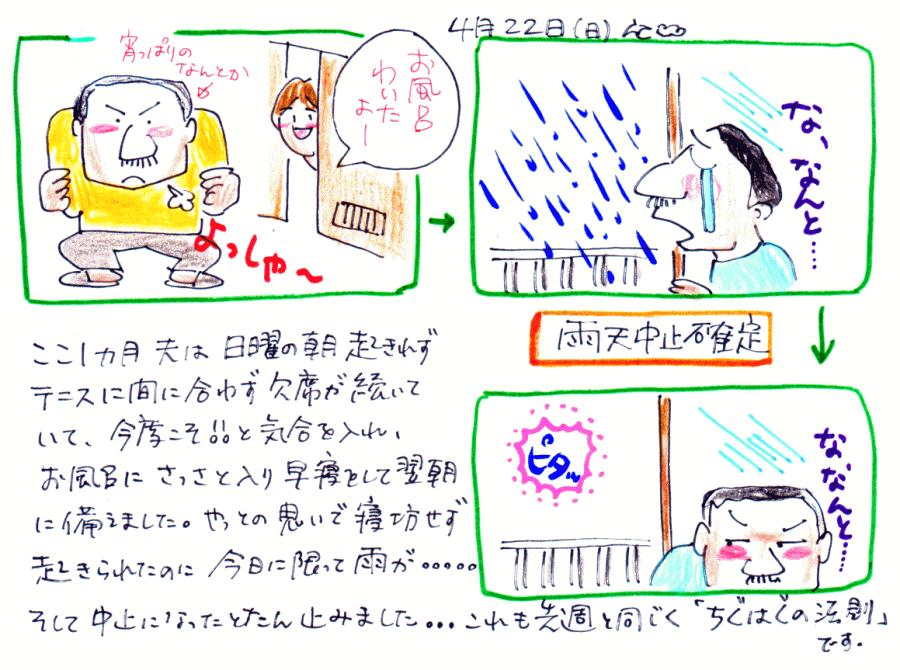 4月22日(日)
宵っぱりの
なんとか
お風呂
わいた
よー
よっしゃ〜
な、なんと・・・・
雨天中止確定
ピタッ
な、なんと・・・・
ここ1カ月 夫は 日曜の朝 起きれず
テニスに間に合わず 欠席が続いて
いて、今度こそ!!と気合を入れ、
お風呂に さっさと入り 早寝をして翌朝
に備えました。やっとの思いで寝坊せず
起きられたのに 今日に限って 雨が・・・・・
そして 中止になったとたん 止みました・・・ これも 先週と同じく「ちぐはぐの法則」
です.